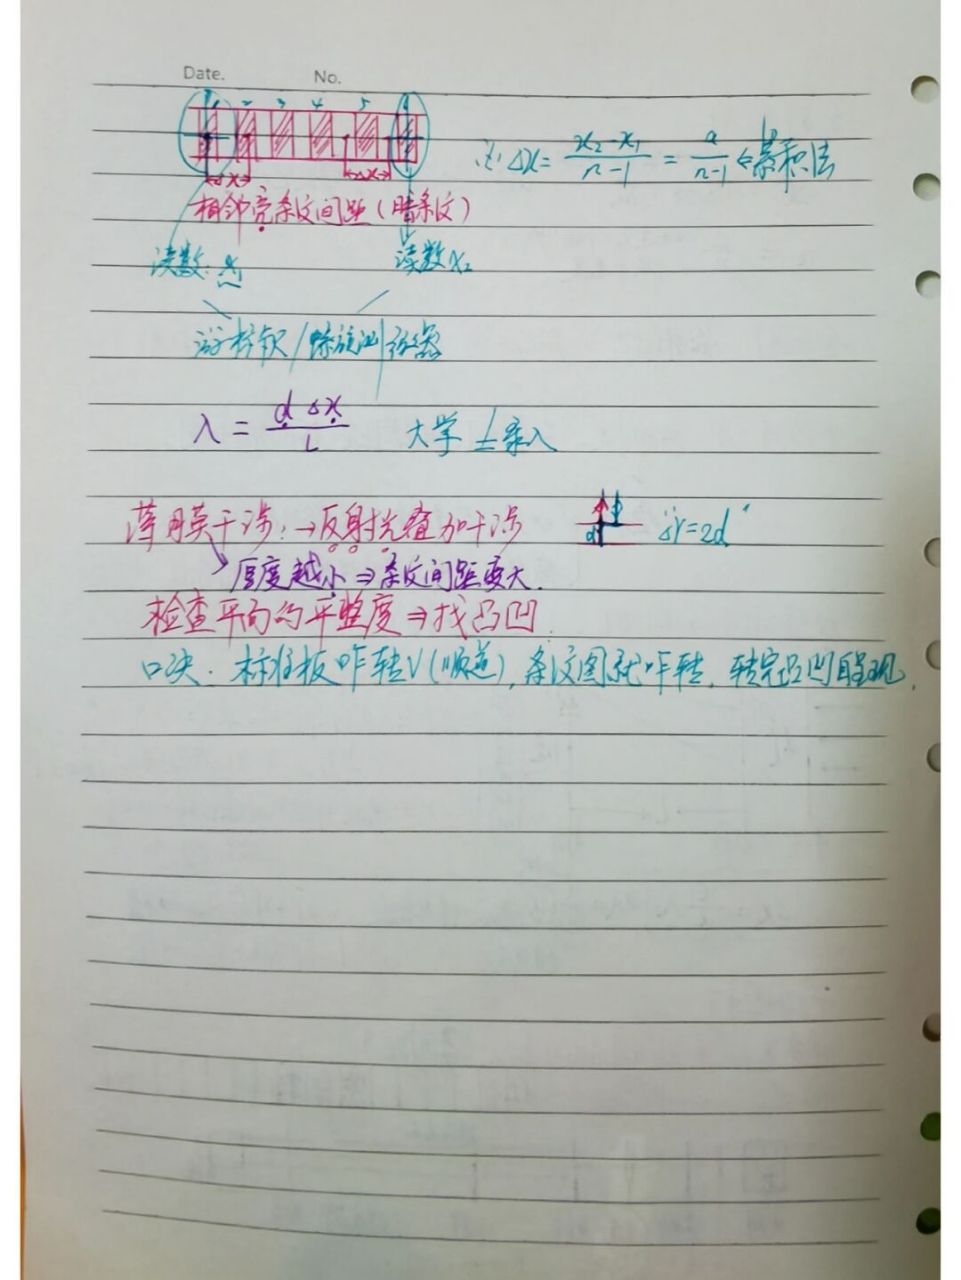 Date. No.
1 2 3 4 5 6
Δx Δx
∴ Δx = (x₂-x₁)/(n-1) = a/(n-1) ⇐ 累积法
相邻亮条纹间距(暗条纹)
读数: x₁ 读数 x₂
游标卡尺/螺旋测微器
λ = dΔx/L 大学
薄膜干涉: →反射光叠加干涉 d Δr=2d
厚度越小⇒条纹间距变大.
检查平面的平整度⇒找凸凹
口诀: 标准板咋转√(顺逆), 条纹图就咋转, 转完凸凹自呈现.